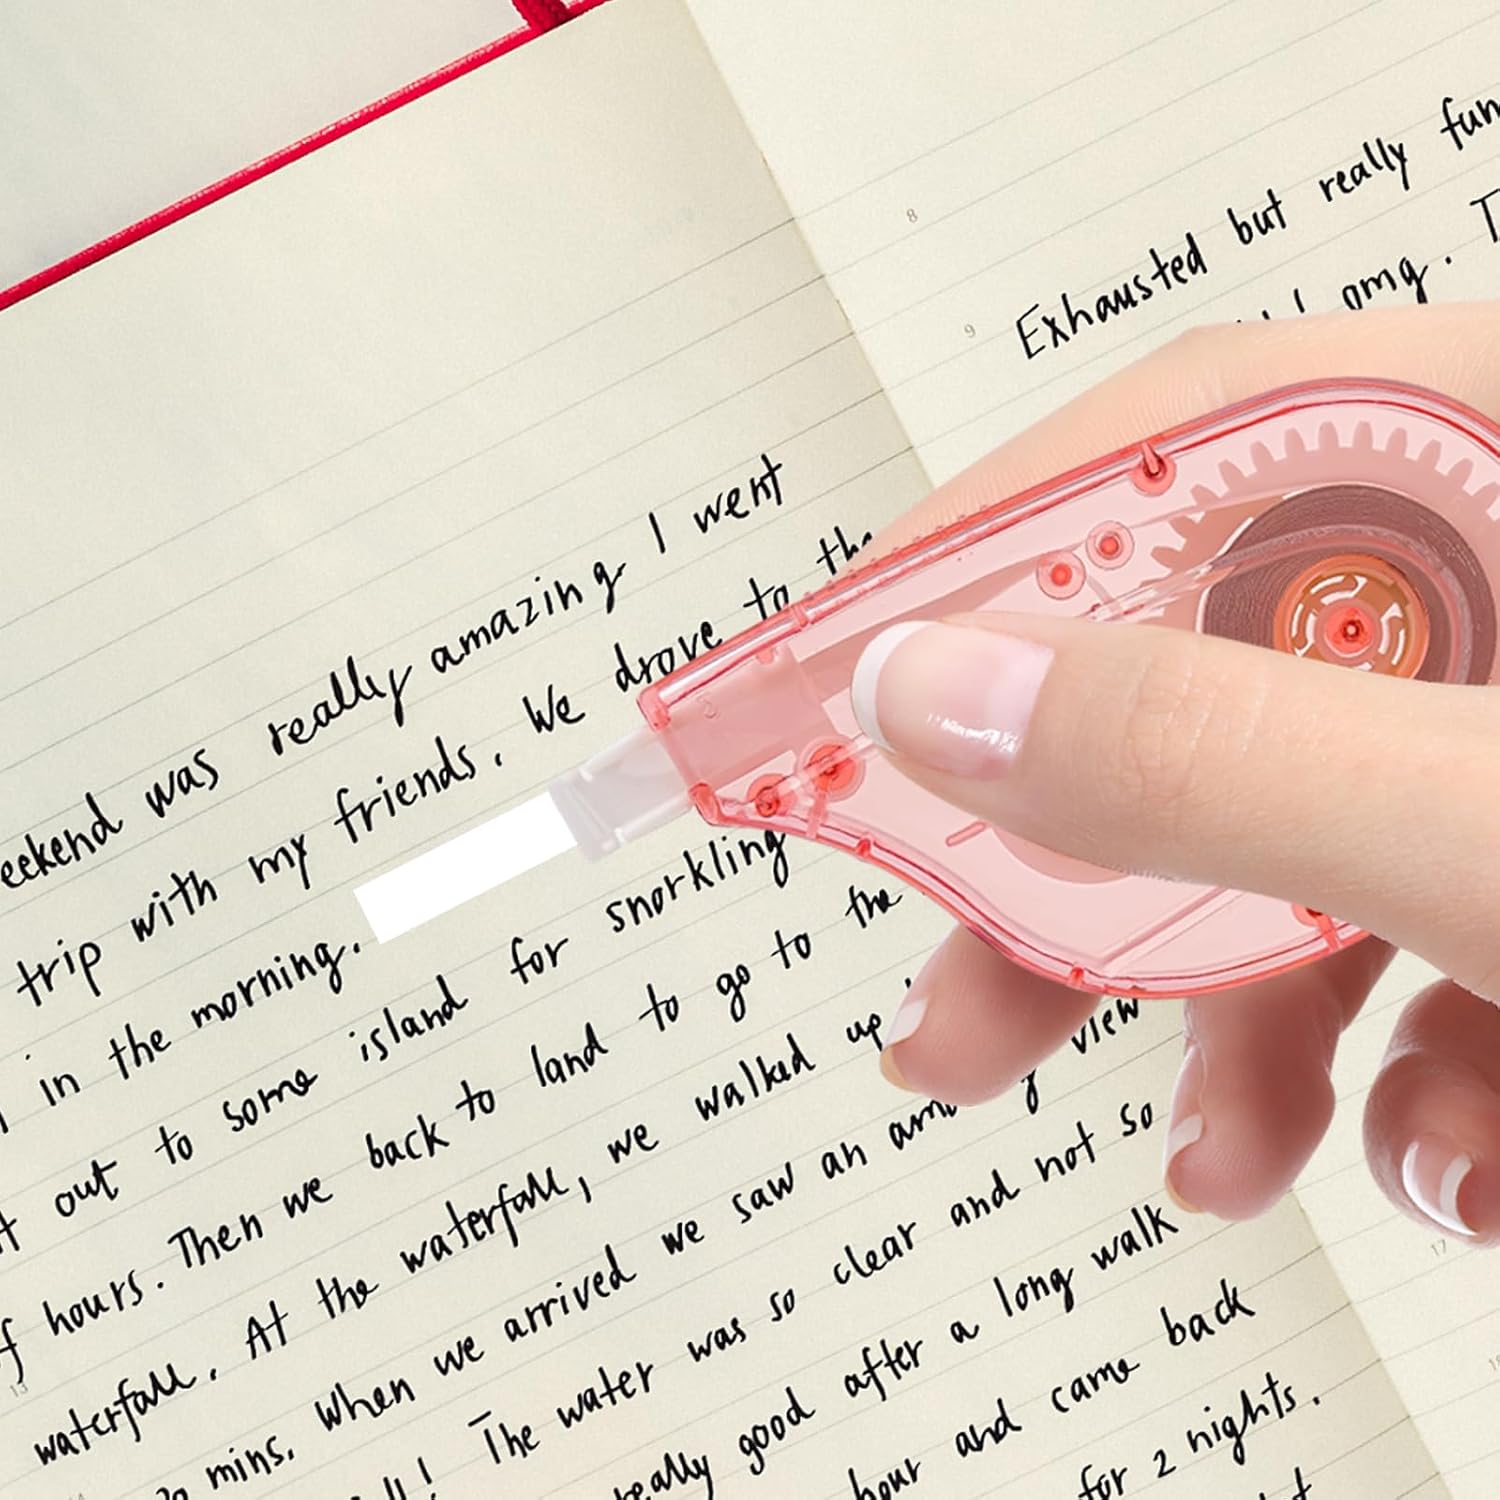 eekend was really amazing. I went
trip with my friends. We drove to the
in the morning.
out to some island for snorkling
hours. Then we back to land to go to the
waterfall. At the waterfall, we walked up
mins. When we arrived we saw an view
The water was so clear and not so
really good after a long walk
hour and came back
for 2 nights.
8
9
13
17
Exhausted but really fun
omg. T